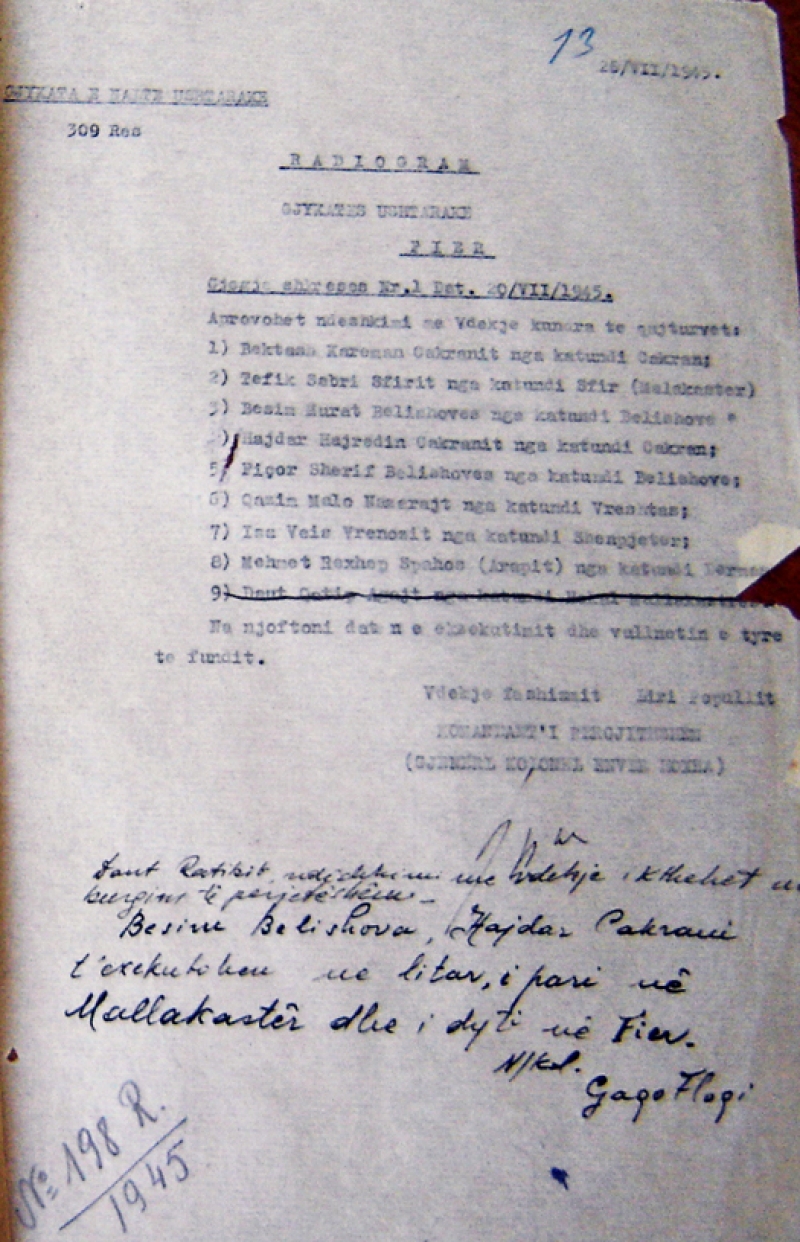 13
20/VII/1945.
GJYKATA E NALTE USHTARAKE
309 Res
RADIOGRAM
GJYKATES USHTARAKE
FIER
Gjegje shkreses Nr.1 Dat. 20/VII/1945.
Aprovohet ndeshkimi me Vdekje kundra te qajturvet:
1) Bektash Karaman Cakranit nga katundi Cakran;
2) Tefik Sabri Sfirit nga katundi Sfir (Malakaster)
3) Besim Murat Belishoves nga katundi Belishove "
4) Hajdar Hajredin Cakranit nga katundi Cakran;
5) Fiqor Sherif Belishoves nga katundi Belishove;
6) Qazim Malo nga katundi Vreshtas;
7) Isa Veis Vrenozit nga katundi Shenpjeter;
8) Mehmet Rexhep Spahos (Arapit) nga katundi
9) Daut nga katundi
Na njoftoni daten e eksekutimit dhe vullnetin e tyre
te fundit.
Vdekje fashizmit Liri Popullit
KOMANDANT'I PERGJITHESHEM
(GJENERL KOLONEL ENVER HOXHA)
Daut ndëshkimi me vdekje i kthehet
burgim të përjetëshëm
Besim Belishova, Hajdar Cakrani
t'exekutohen ne litar, i pari në
Mallakastër dhe i dyti në Fier.
N/kol.
Gago Flogi
No 198 R.
1945